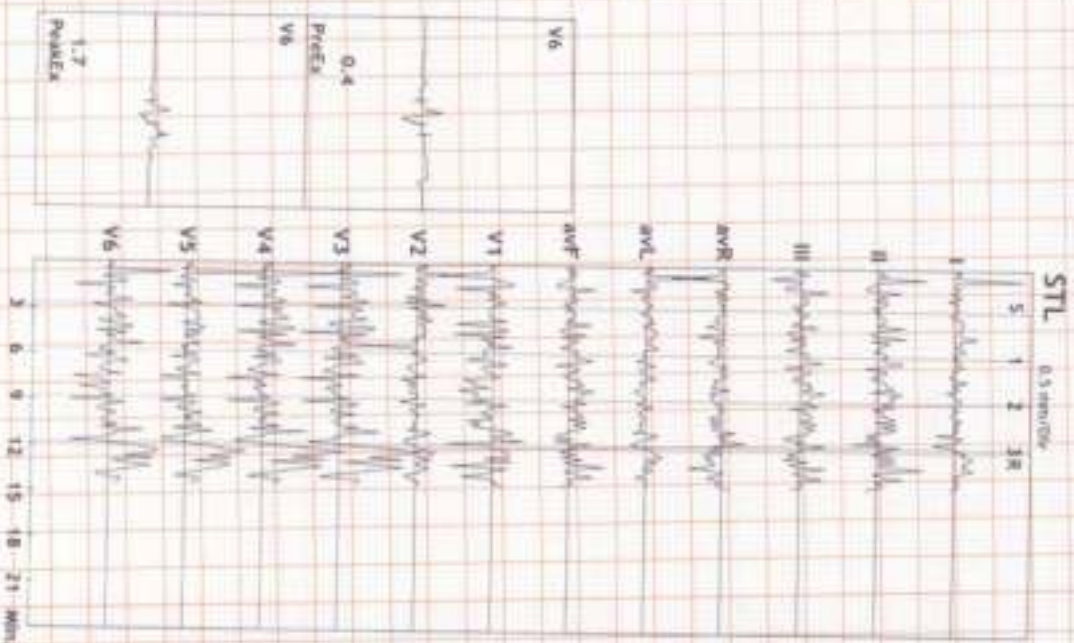 STL 0.5 mm/div
S 1 2 3R
I
II
III
avR
avL
avF
V1
V2
V3
V4
V5
V6
3 6 9 12 15 18 21 Min.
V6
0.4
PreEx
V6
1.7
PeakEx